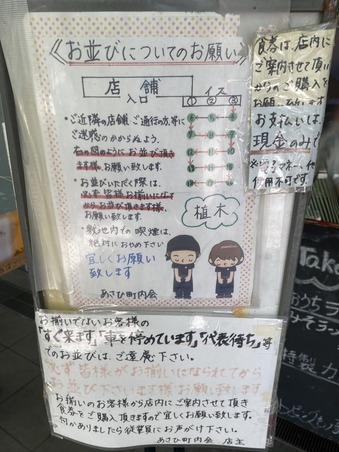 《お並びについてのお願い》
店舗
入口
イス
① ② ③
・ご近隣の店舗、ご通行の方、等に
ご迷惑のかからぬよう、
右の図のようにお並び頂き
ます様、お願い致します。
・お並びいただく際は、
必ず皆様お揃いになって
からお並び頂きます様、
お願い致します。
・敷地内での喫煙は、
絶対におやめ下さい
宜しくお願い
致します
植木
あさひ町内会
食券は、店内に
ご案内させて頂い
てからのご購入を
お願い
お支払いは、
現金のみで
使用不可です。
Take
おうち
特製
お揃いでないお客様の
「すぐ来ます」「車を停めています」「代表待ち」等
でのお並びは、ご遠慮下さい。
必ず皆様がお揃いになられてから
お並び下さいます様お願い致します
お揃いのお客様から店内にご案内させて頂き
食券をご購入頂きますので宜しくお願い致します。
何かありましたら従業員にお声がけ下さい。
あさひ町内会 店主